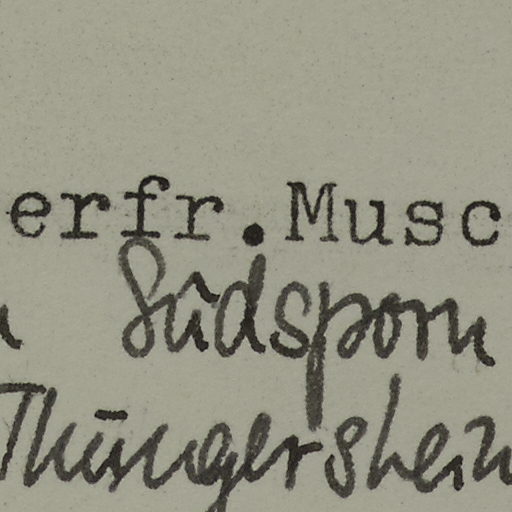 erfr. Musc
Südsporn
Thüngershein